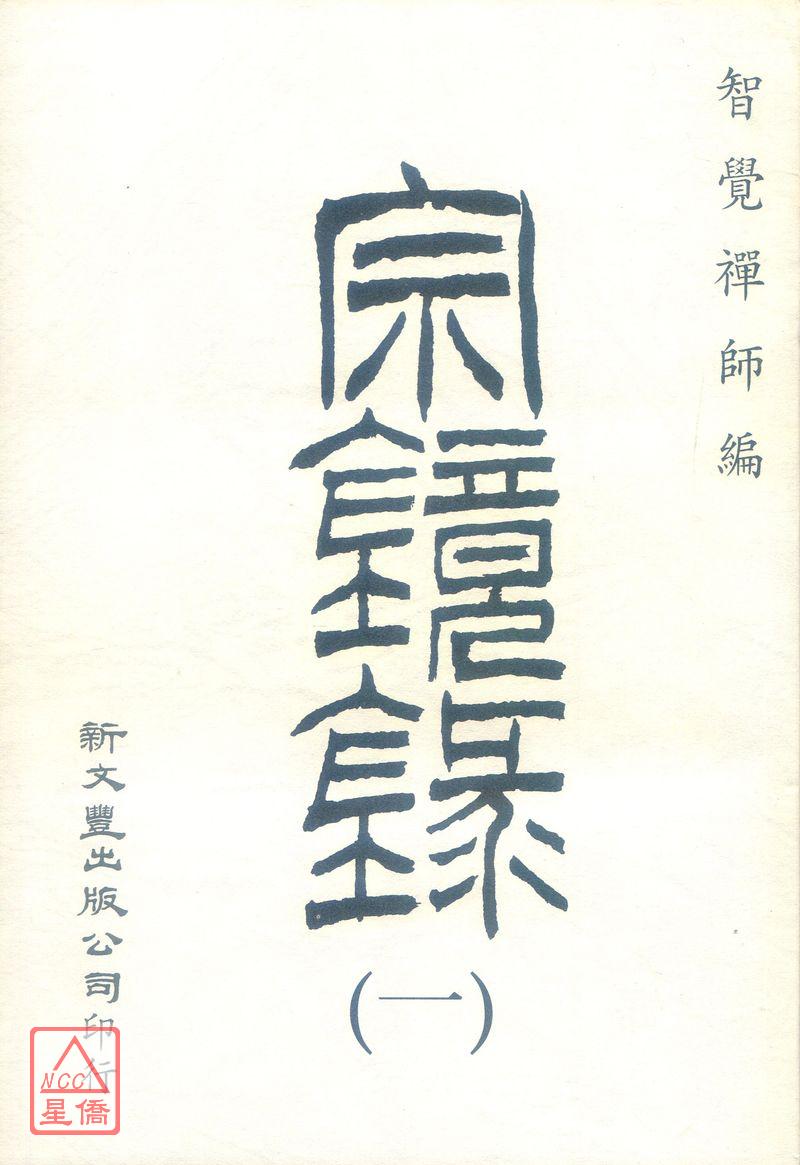 智覺禪師編
宗鏡錄
(一)
新文豐出版公司印行
NCC
星僑